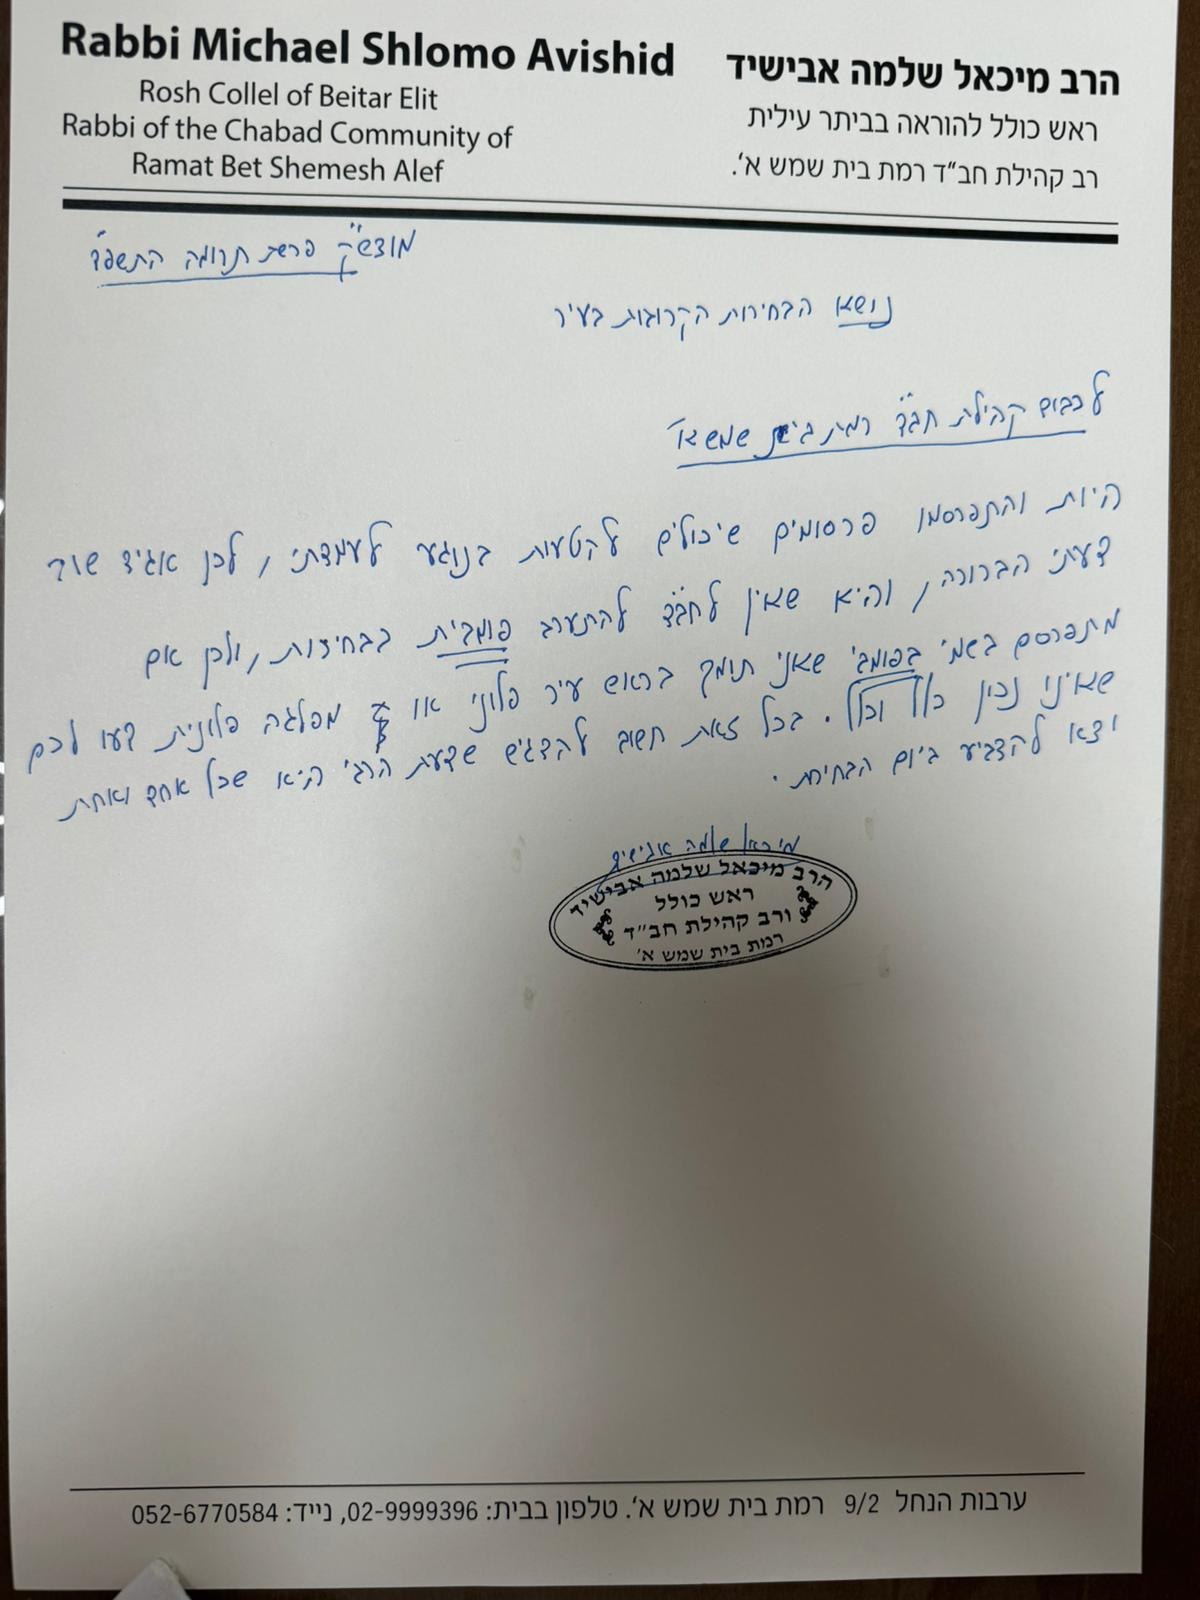 Rabbi Michael Shlomo Avishid
Rosh Collel of Beitar Elit
Rabbi of the Chabad Community of
Ramat Bet Shemesh Alef
הרב מיכאל שלמה אבישיד
ראש כולל להוראה בביתר עילית
רב קהילת חב"ד רמת בית שמש א'.
מוצש"ק פרשת תרומה התשפ"ד
נושא הבחירות הקרובות בעיר
לכבוד קהילת חב"ד רמת בית שמש א'
היות והתפרסמו פרסומים שיכולים להטעות בנוגע לעמדתי, לכן אגיד שוב
דעתי הברורה, והיא שאין לחב"ד להתערב פומבית בבחירות, ולכן אם
מתפרסם בשמי בפומבי שאני תומך בראש עיר פלוני או מפלגה פלונית דעו לכם
שאינו נכון כלל וכלל. בכל זאת חשוב להדגיש שדעת הרבי היא שכל אחד ואחת
יצא להצביע ביום הבחירות.
מיכאל שלמה אבישיד
הרב מיכאל שלמה אבישיד
ראש כולל
ורב קהילת חב"ד
רמת בית שמש א'
ערבות הנחל 9/2 רמת בית שמש א'. טלפון בבית: 02-9999396, נייד: 052-6770584